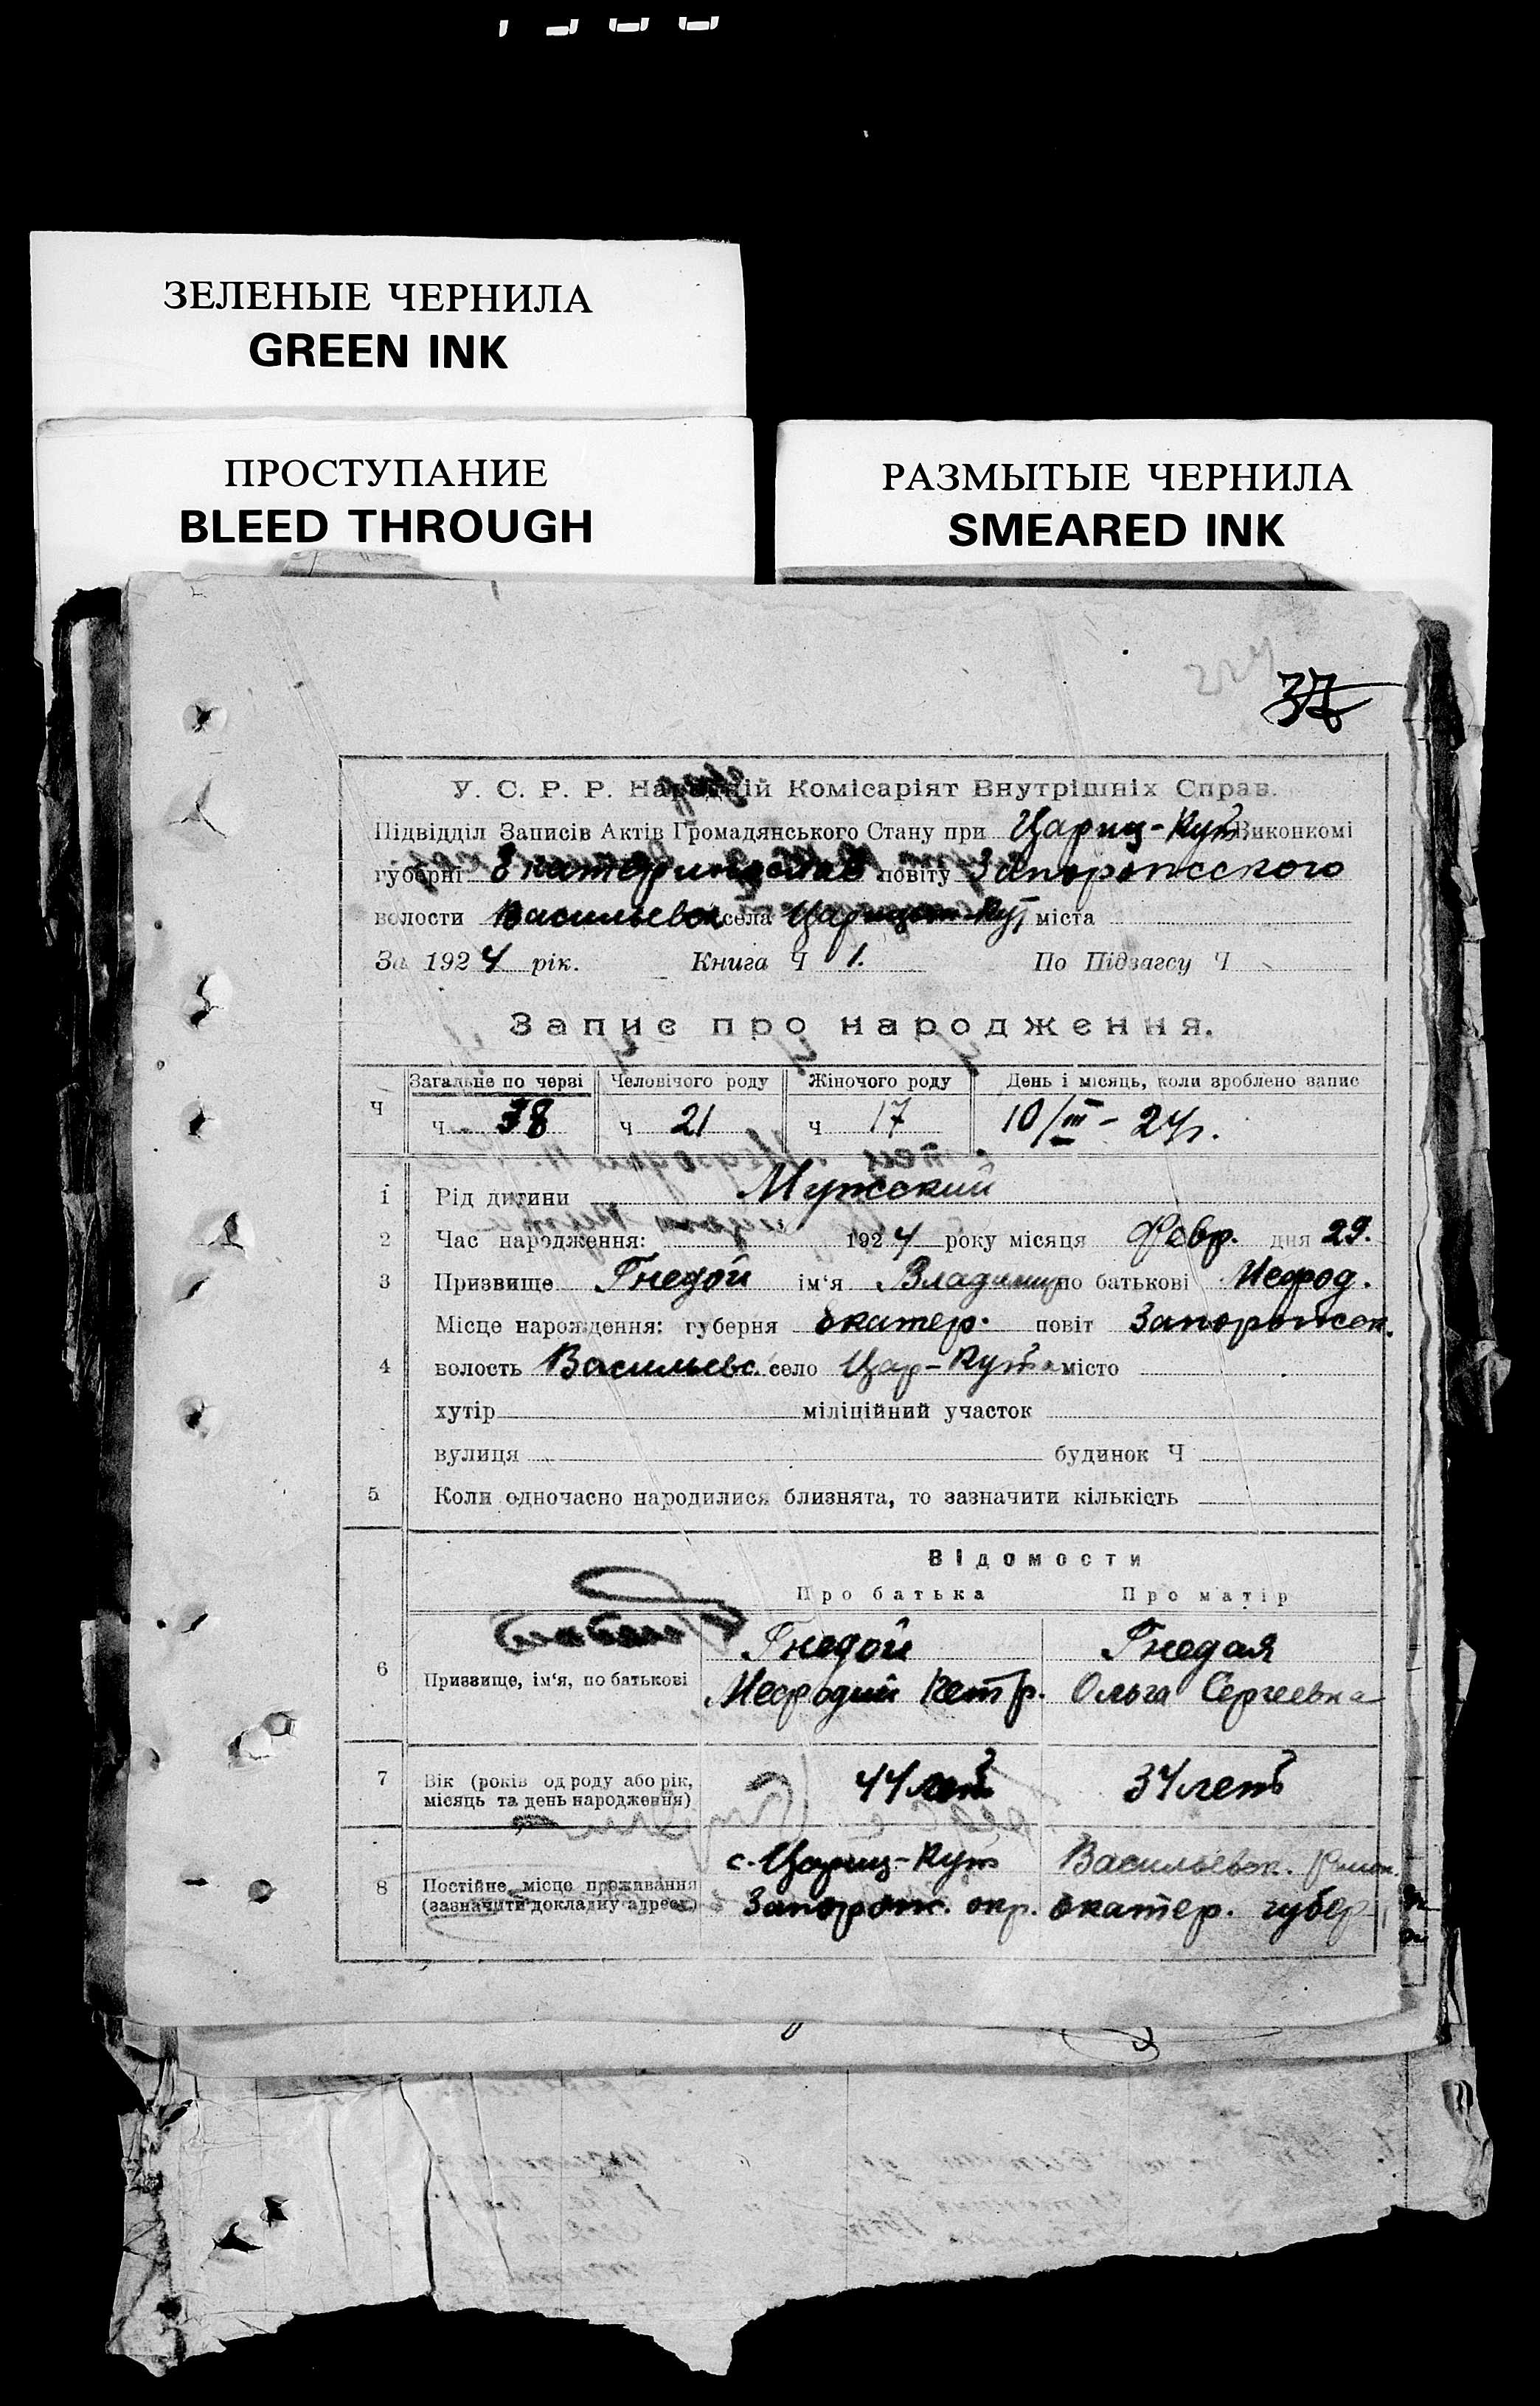 ЗЕЛЕНЫЕ ЧЕРНИЛА
GREEN INK
ПРОСТУПАНИЕ
BLEED THROUGH
РАЗМЫТЫЕ ЧЕРНИЛА
SMEARED INK
37
У. С. Р. Р. Народній Комісаріят Внутрішніх Справ.
Підвідділ Записів Актів Громадянського Стану при Цариц-Кут Виконкомі
губерні Екатеринослав повіту Запорожского
волости Васильевск села Царицын-Кут міста
За 1924 рік. Книга Ч 1. По Підзагсу Ч
Запис про народження.
Ч Загальне по черзі Человічого роду Жіночого роду День і місяць, коли зроблено запис
ч 38 ч 21 ч 17 10/III - 24г.
1 Рід дитини Мужский
2 Час народження: 1924 року місяця Февр. дня 29.
3 Призвище Гнедой ім'я Владимир по батькові Мефод.
Місце народження: губерня Екатер. повіт Запорожск.
4 волость Васильевс. село Цар-Кут місто
хутір міліційний участок
вулиця будинок Ч
5 Коли одночасно народилися близнята, то зазначити кількість
Відомости
Про батька Про матір
Гнедой Гнедая
6 Призвище, ім'я, по батькові Мефодий Петр. Ольга Сергеевна
7 Вік (років од роду або рік, місяць та день народження) 44 лет 34 лет
с. Цариц-Кут Васильевск. Район.
8 Постійне місце проживання (зазначити докладну адресу) Запорож. окр. Екатер. губер